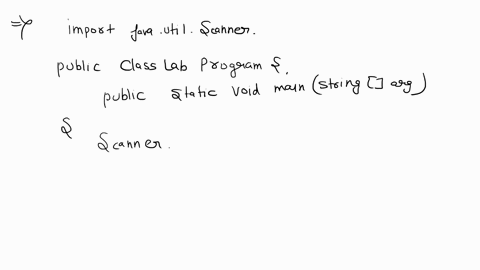 => import java.util.Scanner.
public Class Lab Program {.
public Static void main (String [] arg)
{
Scanner.